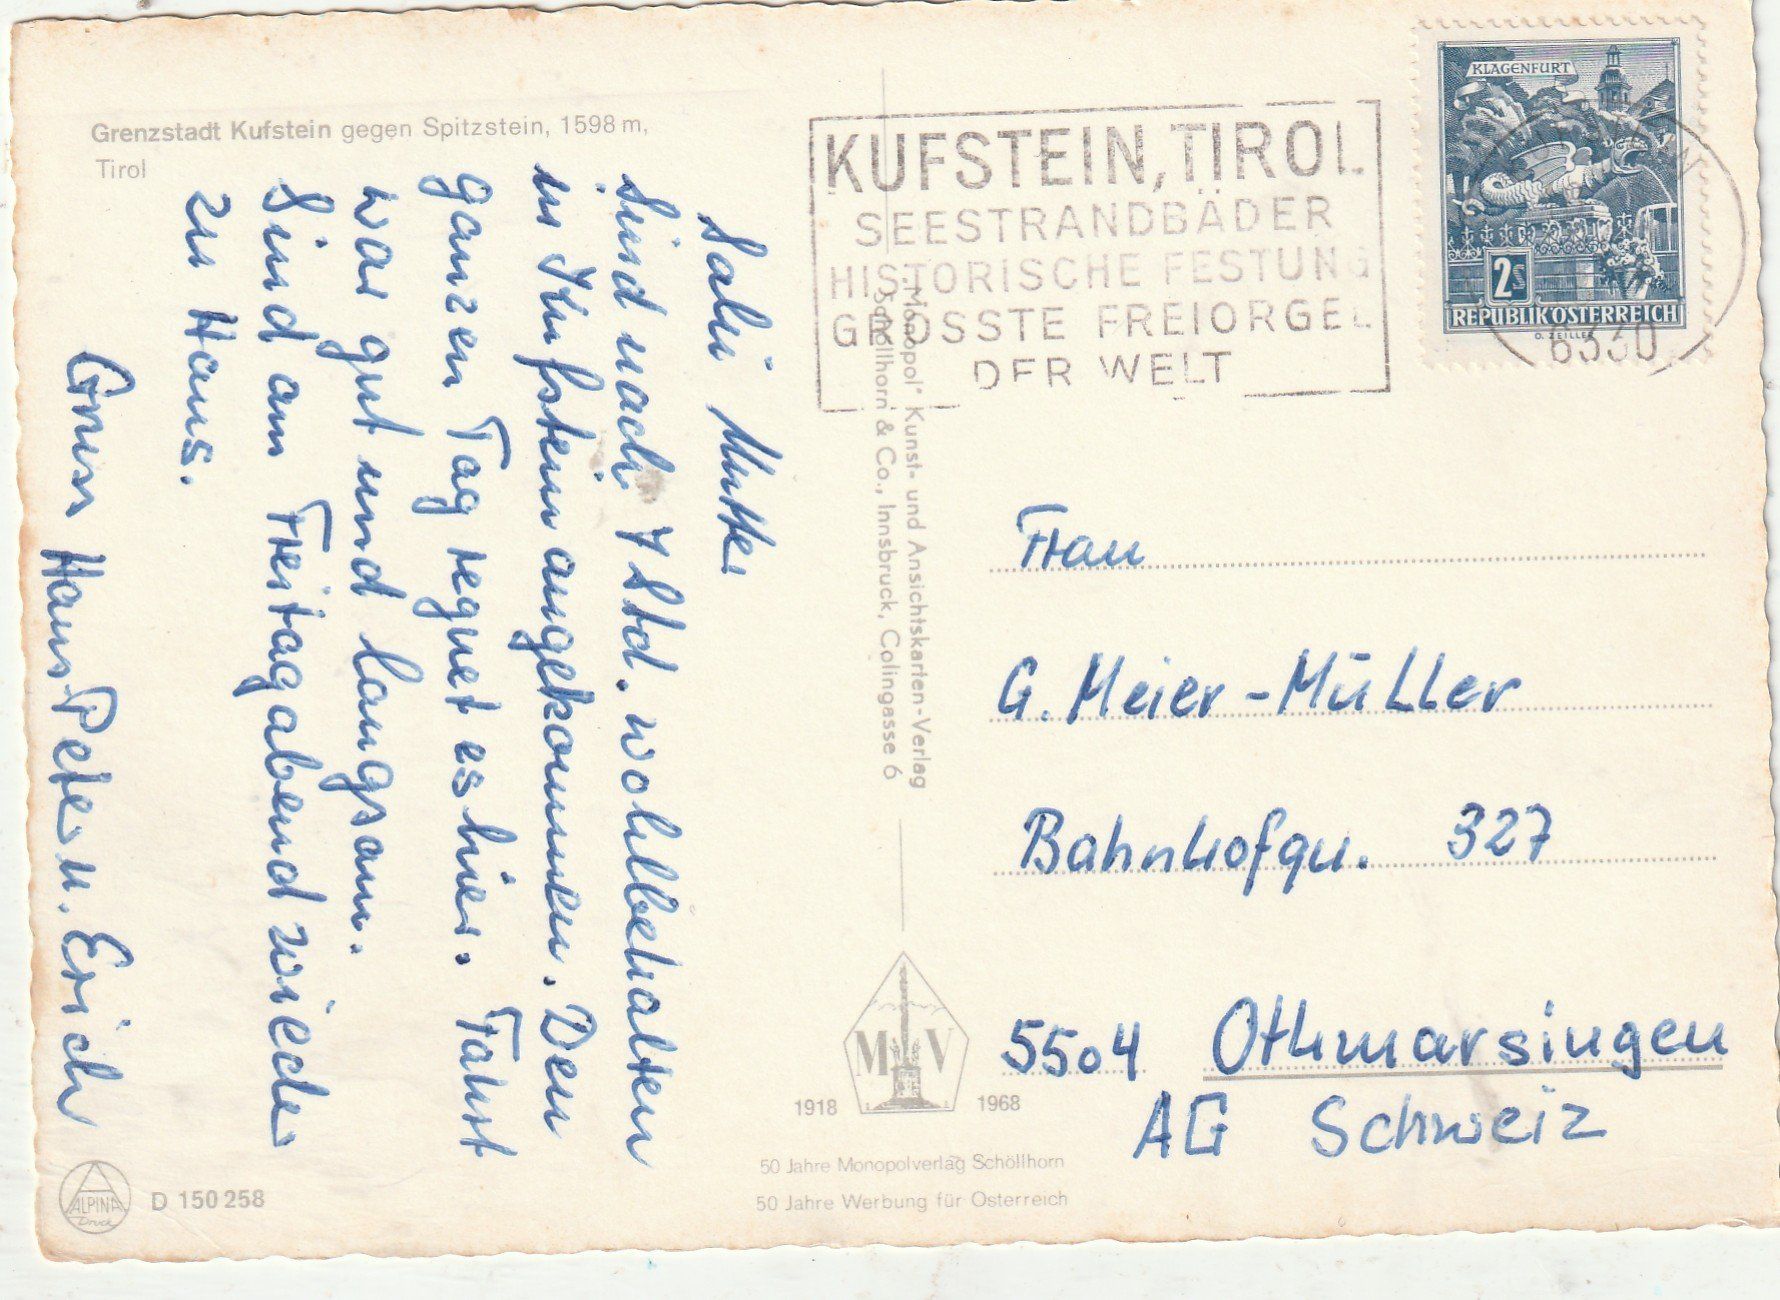 Grenzstadt Kufstein gegen Spitzstein, 1598 m,
Tirol
Salü Mutter
Sind nach 7 Std. wohlbehalten
in Kufstein angekommen. Den
ganzen Tag regnet es hier. Fahrt
war gut und langsam.
Sind am Freitagabend wieder
zu Haus.
Gruss Hans-Peter u. Erich
ALPINA
Druck
D 150 258
„Monopol" Kunst- und Ansichtskarten-Verlag
Schöllhorn & Co., Innsbruck, Colingasse 6
MV
1918 1968
50 Jahre Monopolverlag Schöllhorn
50 Jahre Werbung für Österreich
KUFSTEIN, TIROL
SEESTRANDBÄDER
HISTORISCHE FESTUNG
GRÖSSTE FREIORGEL
DER WELT
KLAGENFURT
2S
REPUBLIK ÖSTERREICH
O. ZEILLER
6330
Frau
G. Meier-Müller
Bahnhofqu. 327
5504 Othmarsingen
AG Schweiz